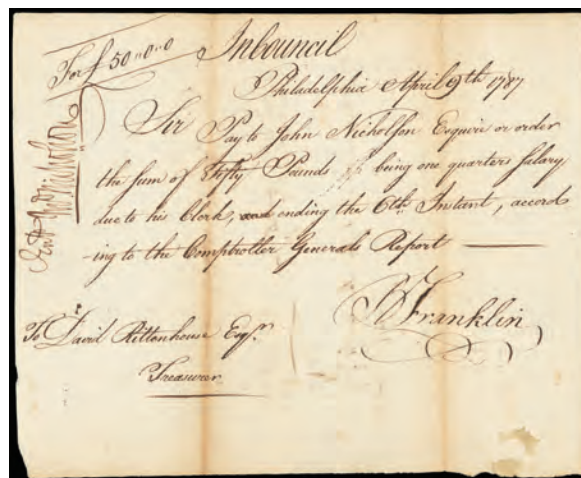 For £ 50"0"0
In Council
Philadelphia April 9th 1787
Sir Pay to John Nicholson Esquire or order
the sum of Fifty Pounds being one quarters salary
due to his Clerk, and ending the 6th Instant, accord
-ing to the Comptroller Generals Report
B Franklin
To David Rittenhouse Esqr.
Treasurer
Jno Nicholson